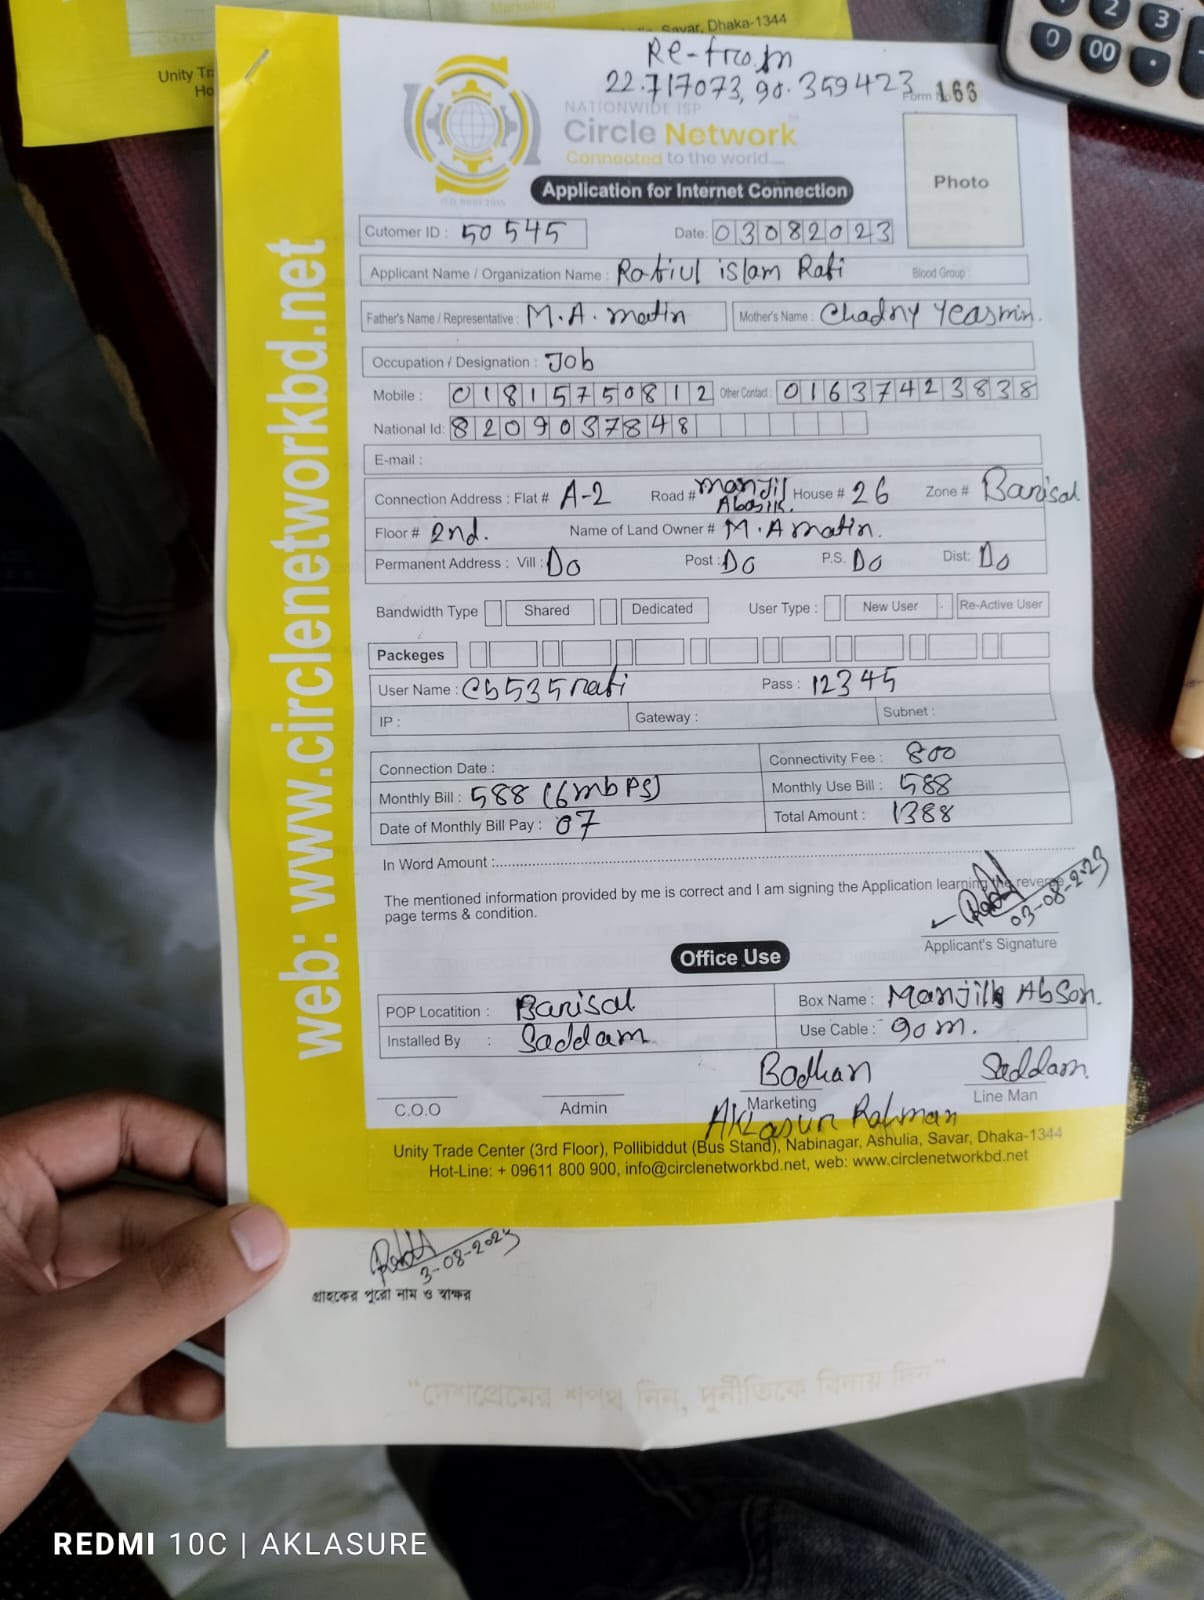 Marketing
Savar, Dhaka-1344
Unity Tr
Ho
2 3
0 00 .
Re-from
22.717073, 90.359423
Form No 166
NATIONWIDE ISP
Circle Network
Connected to the world....
ISO 9001:2015
Photo
Application for Internet Connection
Cutomer ID : 50545 Date: 03082023
Applicant Name / Organization Name : Rafiul islam Rafi Blood Group :
Father's Name / Representative : M.A. matin Mother's Name : Chadny Yeasmin.
Occupation / Designation : Job
Mobile : 01815750812 Other Contact : 01637423838
National Id: 8209037848
E-mail :
Connection Address : Flat # A-2 Road # manjil Abasik. House # 26 Zone # Barisal
Floor # 2nd. Name of Land Owner # M.A matin.
Permanent Address : Vill : Do Post : Do P.S. Do Dist: Do
Bandwidth Type Shared Dedicated User Type : New User Re-Active User
Packeges
User Name : cb535rafi Pass : 12345
IP : Gateway : Subnet :
Connection Date : Connectivity Fee : 800
Monthly Bill : 588 (6mbps) Monthly Use Bill : 588
Date of Monthly Bill Pay : 07 Total Amount : 1388
In Word Amount :
The mentioned information provided by me is correct and I am signing the Application learning the reverse
page terms & condition.
03-08-2023
Applicant's Signature
Office Use
POP Locatition : Barisal Box Name : Manjils Abson.
Installed By : Saddam Use Cable : 90m.
Bodhan Saddam
C.O.O Admin Marketing Line Man
Aklasur Rahman
Unity Trade Center (3rd Floor), Pollibiddut (Bus Stand), Nabinagar, Ashulia, Savar, Dhaka-1344
Hot-Line: + 09611 800 900, info@circlenetworkbd.net, web: www.circlenetworkbd.net
web: www.circlenetworkbd.net
3-08-2023
গ্রাহকের পুরো নাম ও স্বাক্ষর
"দেশপ্রেমের শপথ নিন, দুর্নীতিকে বিদায় দিন"
REDMI 10C | AKLASURE